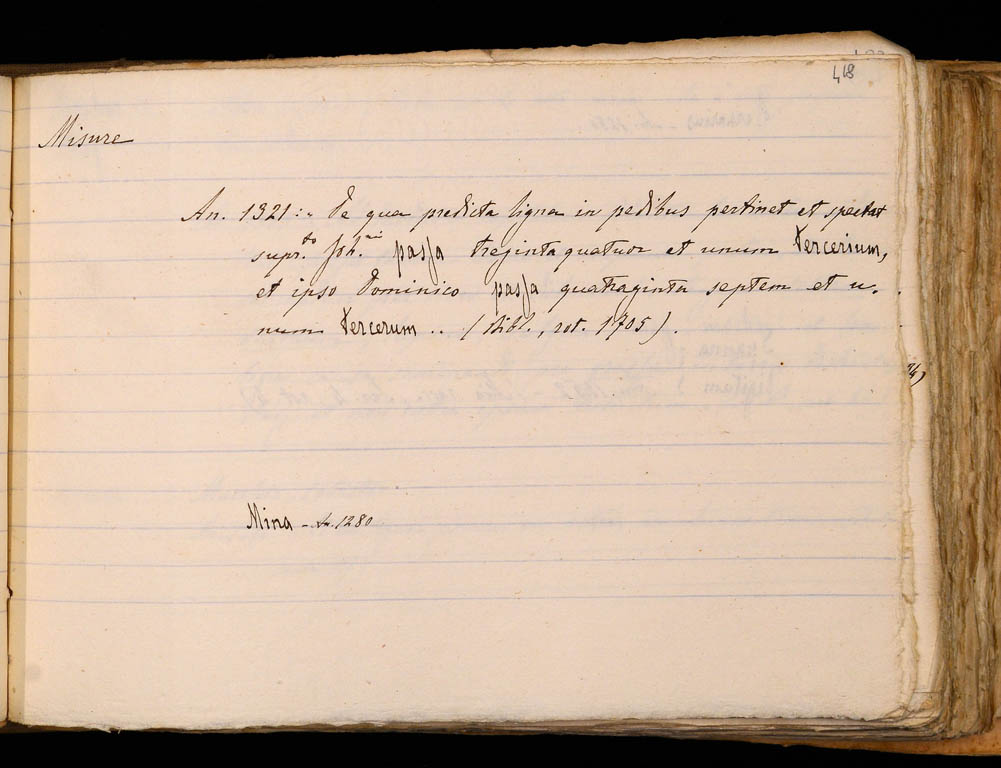 418
Misure
An. 1321:. De qua predicta ligna in pedibus pertinet et spectat
supr.to Joh.ni passa treginta quatuor et unum tercerium,
et ipso Dominico passa quatraginta septem et u-
num tercerum .. (Bibl., rot. 1705).
Mina - An. 1280